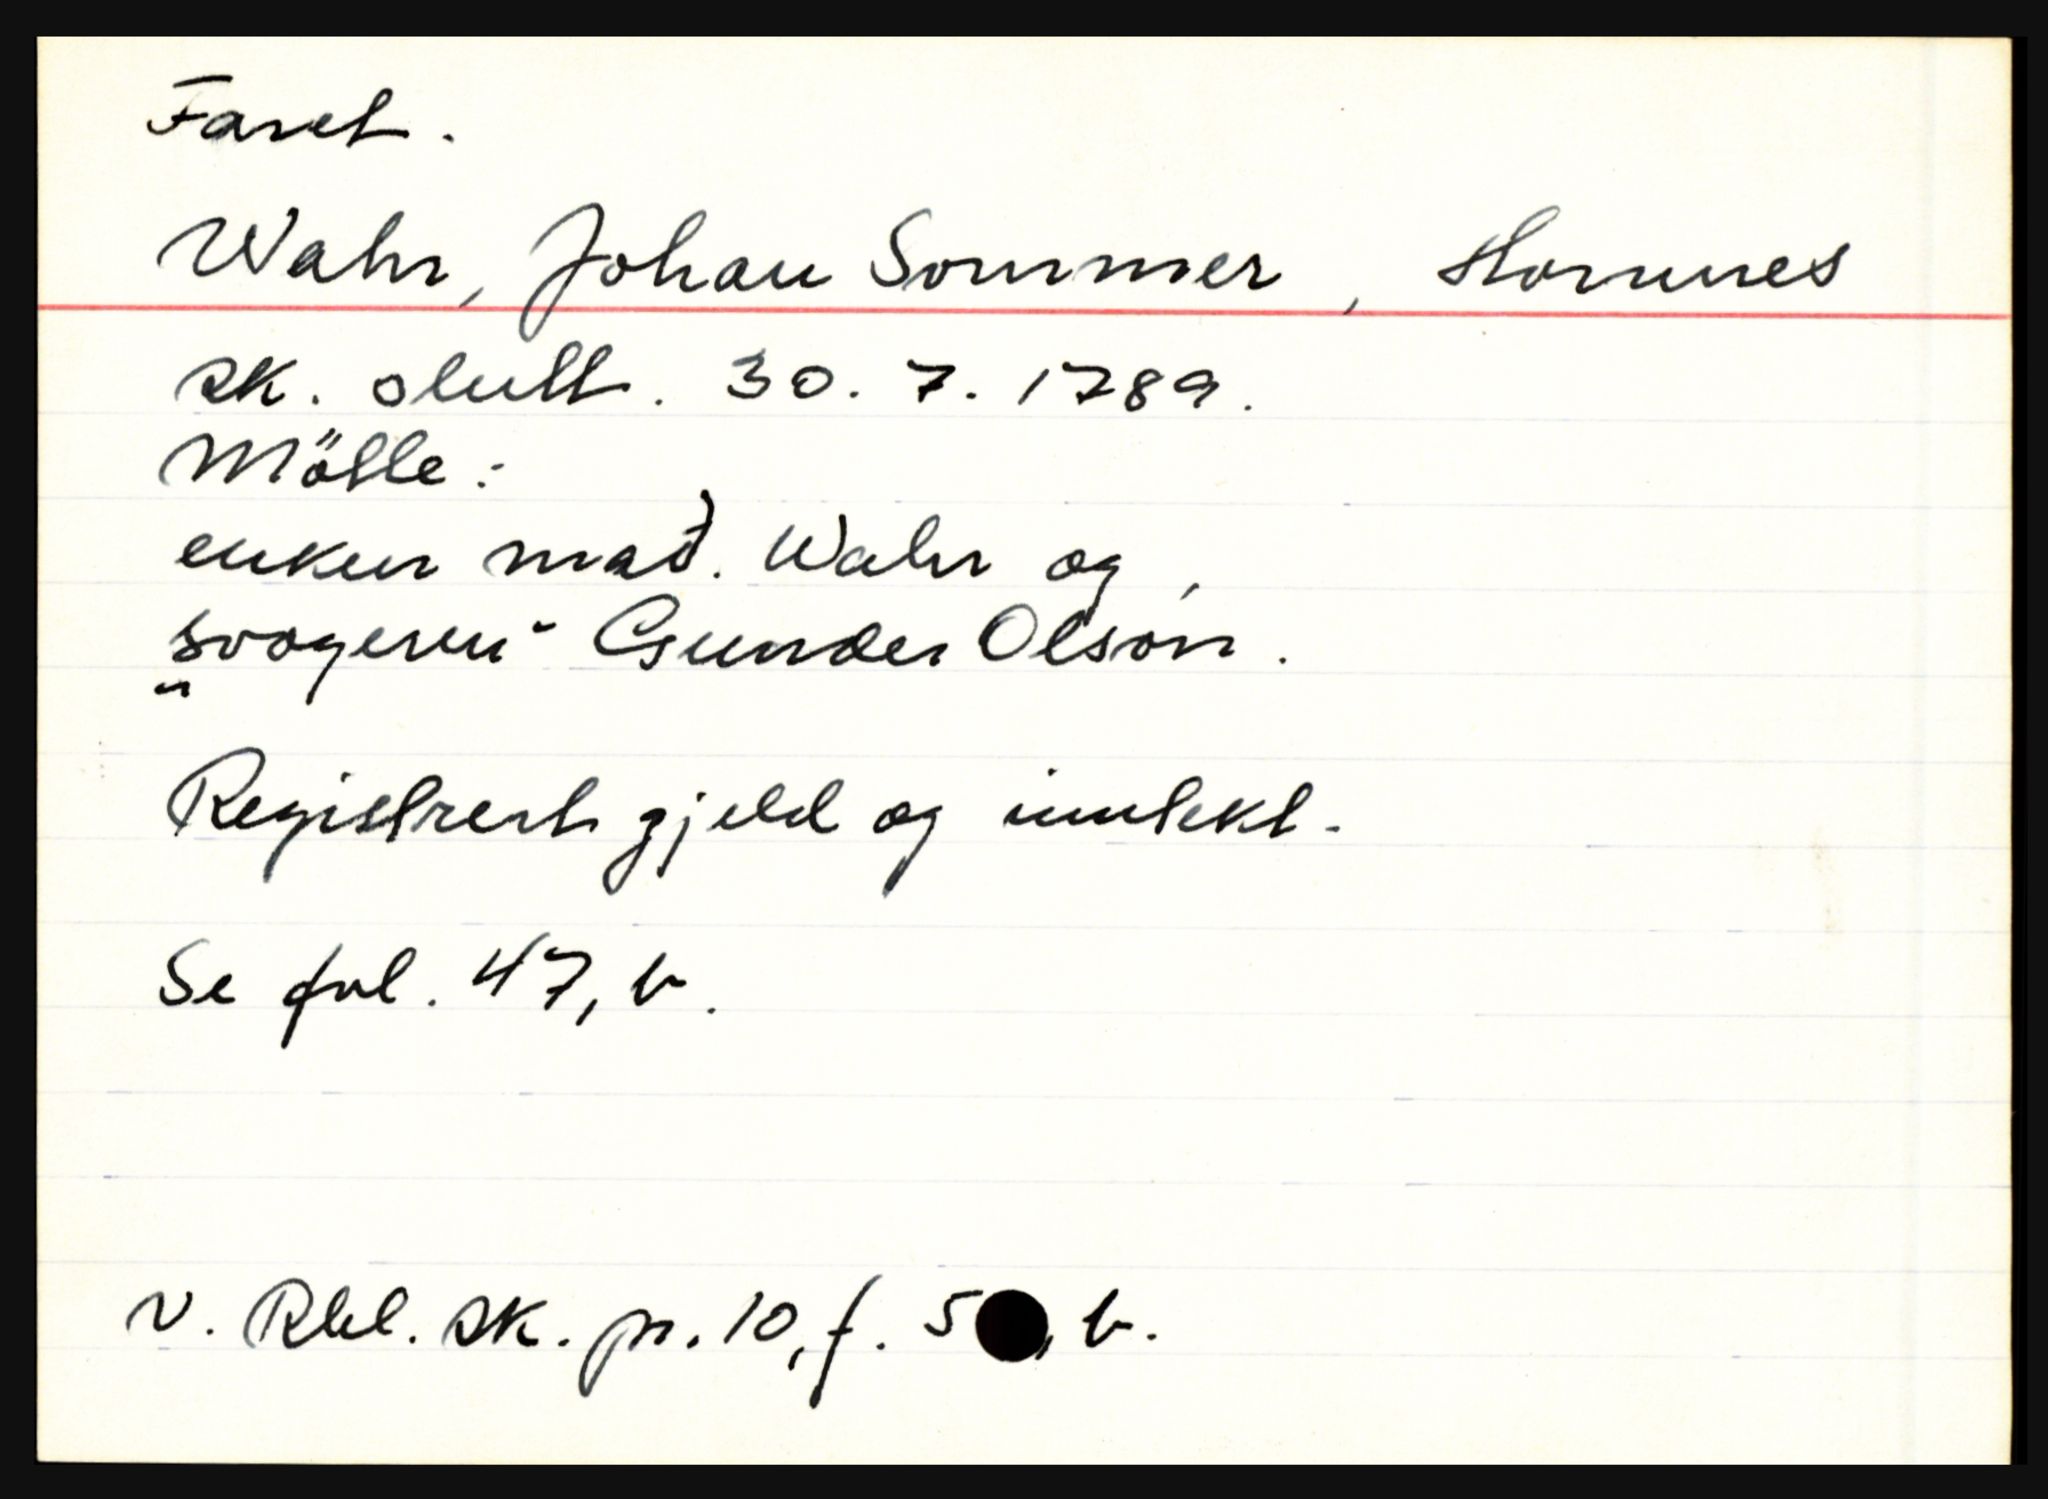 Faret.
Wahr, Johan Sommer, Hornnes
sk. slutt. 30. 7. 1789.
Mötte:
enken mad. Wahr og
„svogeren“ Gunder Olsøn.
Registrert gjeld og inntekt.
Se fol. 47, b.
N. Rbl. sk. pr. 10, f. 5 , b.